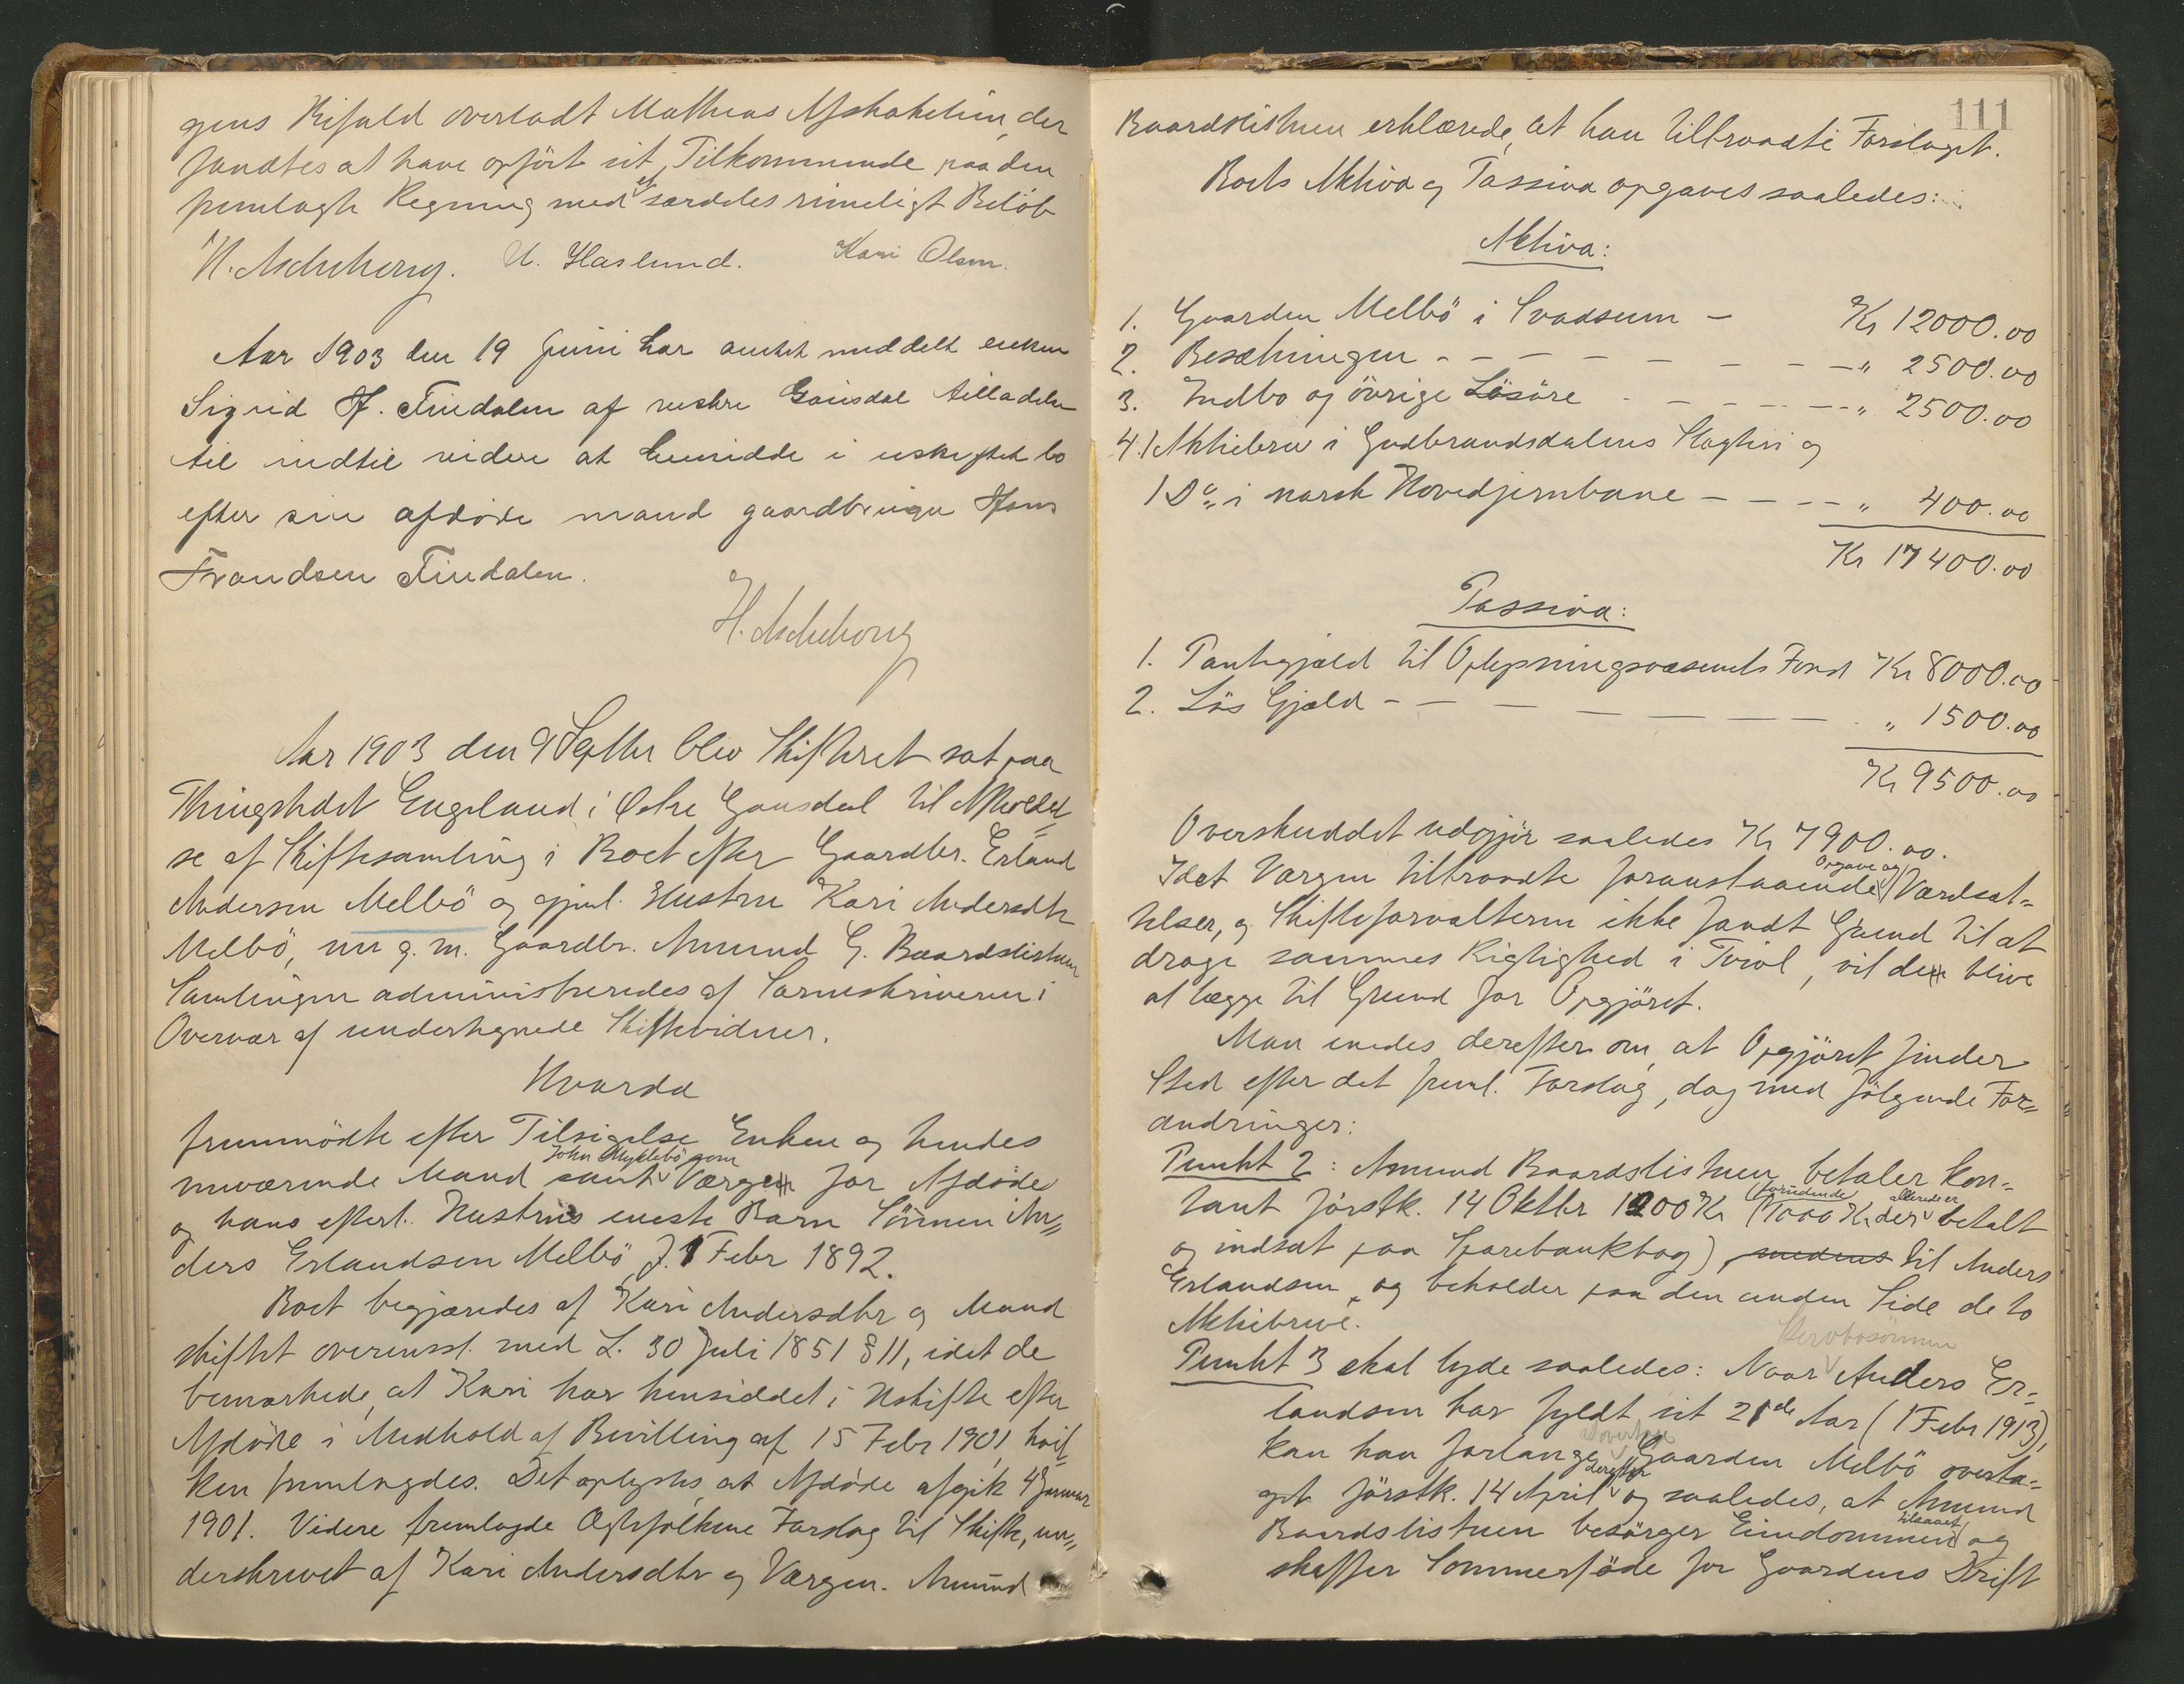 gens Bifald overladt Mathias Afskakelien, der
fandtes at have opført sit Tilkommende paa den
fremlagte Regning med et særdeles rimeligt Beløb
H. Aschehoug. U. Haslund. Kari Olsen.
Aar 1903 den 19 Juni har amtet meddelt enken
Sigrid H. Findalen af vestre Gausdal tilladelse
til indtil videre at hensidde i uskiftet bo
efter sin afdøde mand gaardbruger Hans
Frandsen Findalen.
H. Aschehoug
Aar 1903 den 9 Septbr blev Skifteret sat paa
Thingstedet Engeland i Østre Gausdal til Afholdel=
se af Skiftesamling i Boet efter Gaardbr. Erland
Andersen Melbö og gjenl. Hustru Kari Andersdtr
Melbö, nu g. m. Gaardbr. Amund G. Baardslistuen
Samlingen administreredes af Sorenskriveren i
Overvær af undertegnede Skiftevidner.
Hvorda
fremmödte efter Tilsigelse Enken og hendes
John Myklebö som
nuværende Mand samt Værgen for Afdøde
og hans efterl. Hustrus eneste Barn Sönnen An=
ders Erlandsen Melbö, f. 1 Febr 1892.
Boet begjæredes af Kari Andersdtr og Mand
skiftet overensst. med L. 30 Juli 1851 § 11, idet de
bemærkede, at Kari har hensiddet i Uskifte efter
Afdøde i Medhold af Bevilling af 15 Febr 1901, hvil=
ken fremlagdes. Det oplystes, at Afdøde afgik 4 Januar
1901. Videre fremlagde Ægtefolkene Forslag til Skifte, un=
derskrevet af Kari Andersdtr og Værgen. Amund
111
Baardslistuen erklærede, at han tiltraadte Forslaget.
Boets Aktiva og Passiva opgaves saaledes:
Aktiva:
1. Gaarden Melbö i Svadsum - Kr 12000.00
2. Besætningen - - - - - - - - " 2500.00
3. Indbo og övrige Lösöre - - - - - " 2500.00
4. 1 Aktiebrev i Gudbrandsdalens Slagteri og
1 Do i norsk Hovedjernbane - - - - " 400.00
Kr 17400.00
Passiva:
1. Pantegjæld til Oplysningsvæsenets Fond Kr 8000.00
2. Lös Gjæld - - - - - - - - " 1500.00
Kr 9500.00
Overskuddet udgjör saaledes Kr 7900.00.
Opgave og
Idet Værgen tiltraadte foranstaaende Værdsæt=
telser, og Skifteforvalteren ikke fandt Grund til at
drage sammes Rigtighed i Tvivl, vil den blive
at lægge til Grund for Opgjöret.
Man enedes derefter om, at Opgjöret finder
Sted efter det freml. Forslag, dog med fölgende For=
andringer:
Punkt 2: Amund Baardslistuen betaler kon=
allerede er
tant förstk. 14 Oktbr 1200 Kr (1000 Kr der betalt
og indsat paa Sparebankbog), medens til Anders
Erlandsen, og beholder paa den anden Side de to
Aktiebreve.
Stervbosönnen
Punkt 3 skal lyde saaledes: Naar Anders Er=
landsen har fyldt sit 21de Aar (1 Febr 1913),
at overtage
kan han forlange Gaarden Melbö overta=
derefter
get förstk. 14 April og saaledes, at Amund
tilsaaet
Baardslistuen besörger Eiendommen og
skaffer Sommerföde for Gaardens Drift